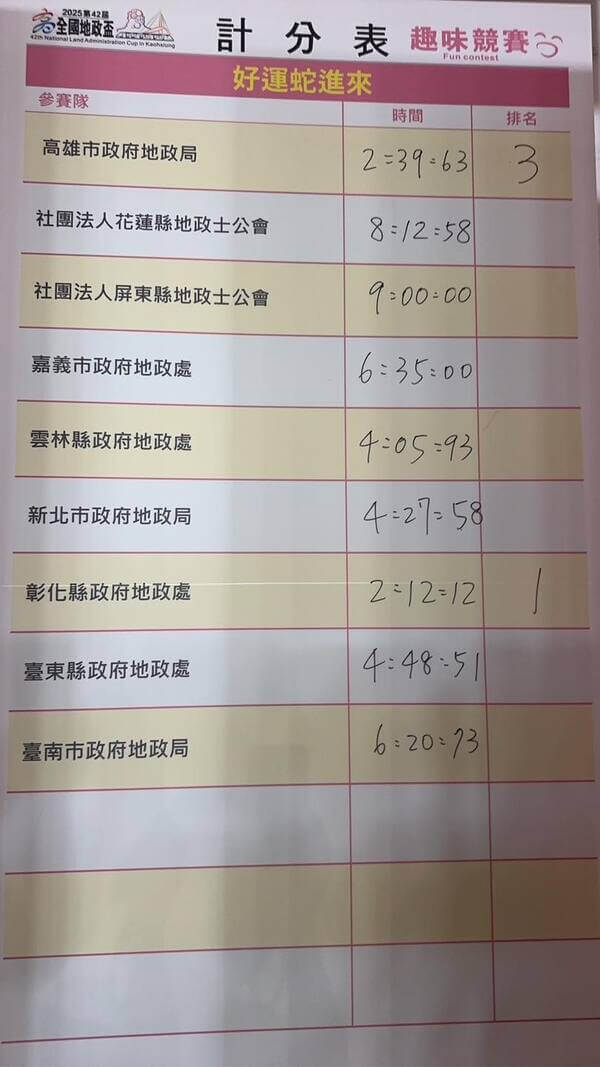 2025第42屆
全國地政盃
42th National Land Administration Cup in Kaohsiung
計分表
趣味競賽
Fun contest
好運蛇進來
參賽隊 時間 排名
高雄市政府地政局 2:39:63 3
社團法人花蓮縣地政士公會 8:12:58
社團法人屏東縣地政士公會 9:00:00
嘉義市政府地政處 6:35:00
雲林縣政府地政處 4:05:93
新北市政府地政局 4:27:58
彰化縣政府地政處 2:12:12 1
臺東縣政府地政處 4:48:51
臺南市政府地政局 6:20:73